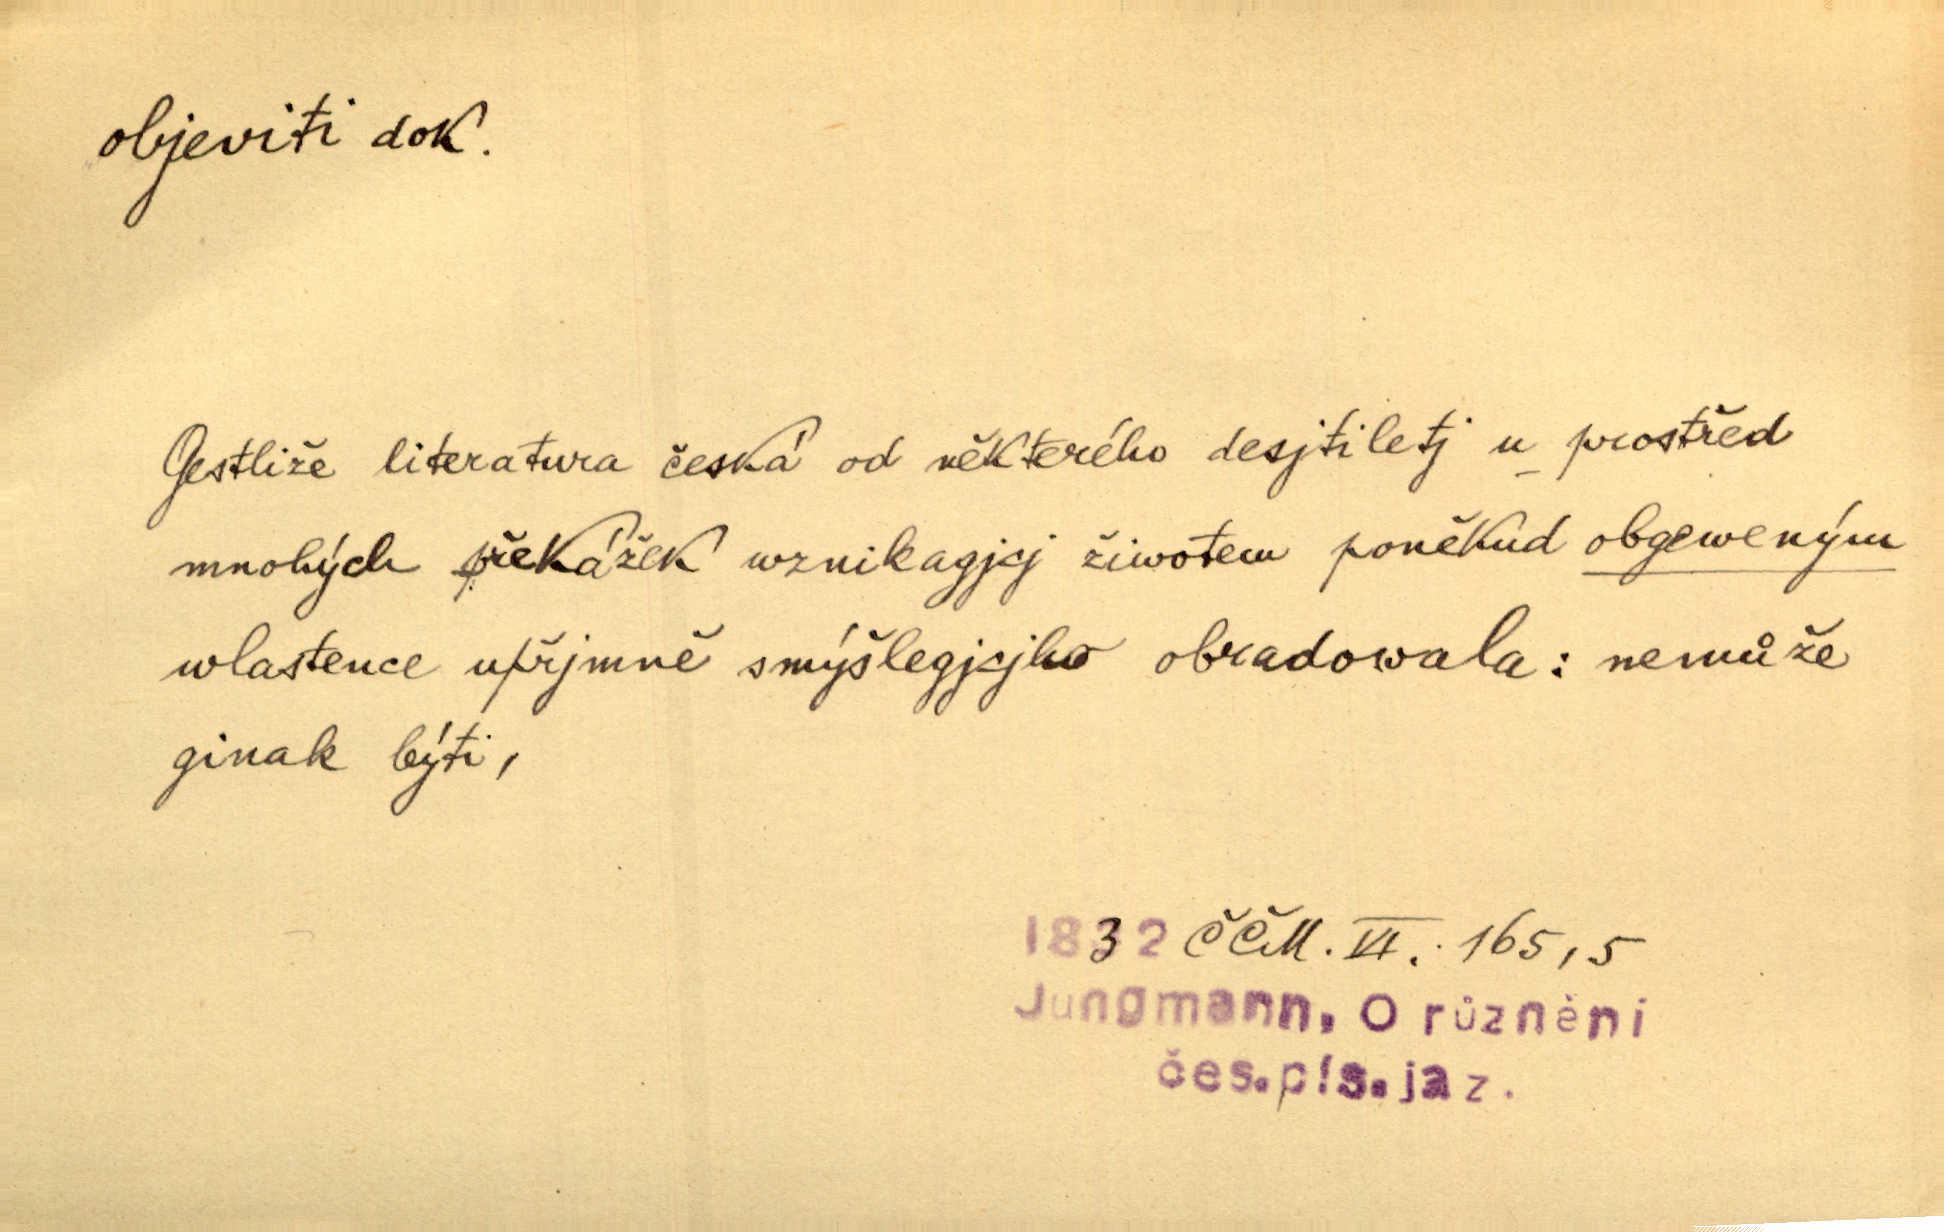 objeviti dok.
Gestliže literatura česká od některého desjtiletj u prostřed
mnohých překážek wznikagjcj žiwotem poněkud obgeweným
wlastence upřjmně smýšlegjcjho obradowala: nemůže
ginak býti,
1832 ČČM. VI. 165,5
Jungmann, O různění
čes.pís.jaz.